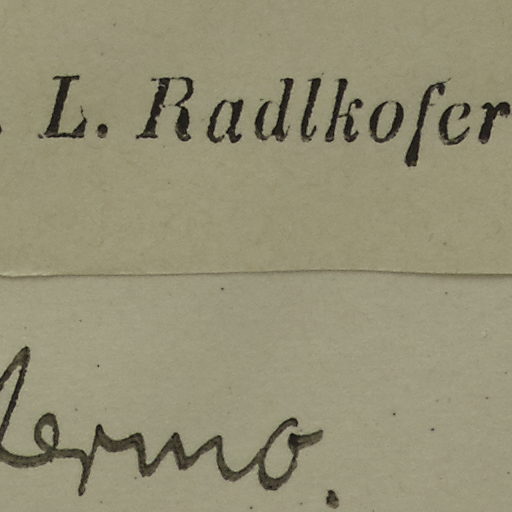 . L. Radlkofer
lermo.